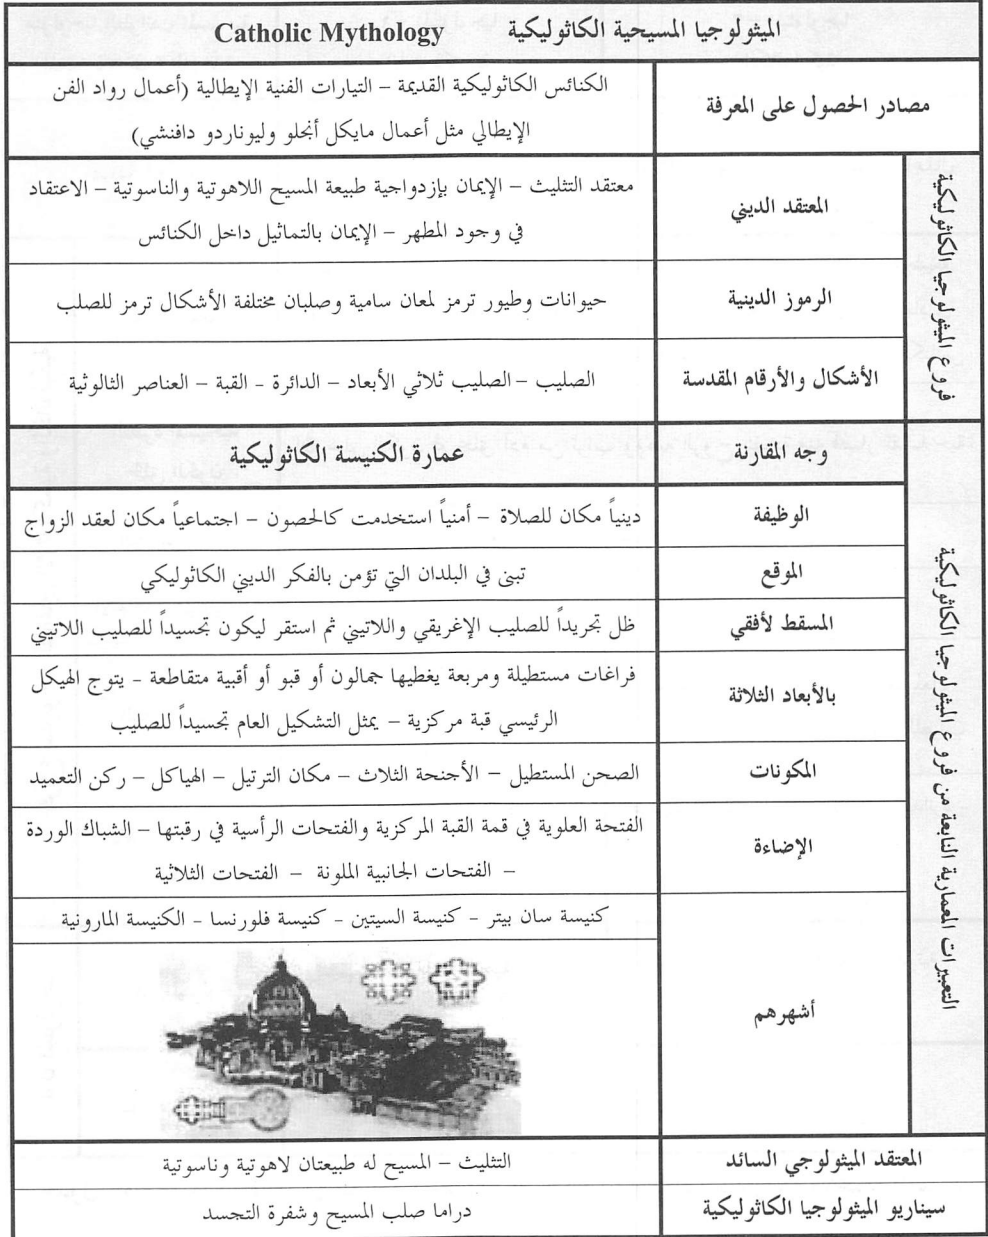 الميثولوجيا المسيحية الكاثوليكية Catholic Mythology
مصادر الحصول على المعرفة
الكنائس الكاثوليكية القديمة – التيارات الفنية الإيطالية (أعمال رواد الفن
الإيطالي مثل أعمال مايكل أنجلو وليوناردو دافنشي)
فروع الميثولوجيا الكاثوليكية
المعتقد الديني
معتقد التثليث – الإيمان بإزدواجية طبيعة المسيح اللاهوتية والناسوتية – الاعتقاد
في وجود المطهر – الإيمان بالتماثيل داخل الكنائس
الرموز الدينية
حيوانات وطيور ترمز لمعان سامية وصلبان مختلفة الأشكال ترمز للصلب
الأشكال والأرقام المقدسة
الصليب – الصليب ثلاثي الأبعاد – الدائرة - القبة – العناصر الثالوثية
التعبيرات المعمارية النابعة من فروع الميثولوجيا الكاثوليكية
وجه المقارنة
عمارة الكنيسة الكاثوليكية
الوظيفة
دينياً مكان للصلاة – أمنياً استخدمت كالحصون – اجتماعياً مكان لعقد الزواج
الموقع
تبنى في البلدان التي تؤمن بالفكر الديني الكاثوليكي
المسقط لأفقي
ظل تجريداً للصليب الإغريقي واللاتيني ثم استقر ليكون تجسيداً للصليب اللاتيني
بالأبعاد الثلاثة
فراغات مستطيلة ومربعة يغطيها جمالون أو قبو أو أقبية متقاطعة - يتوج الهيكل
الرئيسي قبة مركزية – يمثل التشكيل العام تجسيداً للصليب
المكونات
الصحن المستطيل – الأجنحة الثلاث – مكان الترتيل – الهياكل – ركن التعميد
الإضاءة
الفتحة العلوية في قمة القبة المركزية والفتحات الرأسية في رقبتها – الشباك الوردة
– الفتحات الجانبية الملونة – الفتحات الثلاثية
أشهرهم
كنيسة سان بيتر - كنيسة السيتين - كنيسة فلورنسا - الكنيسة المارونية
المعتقد الميثولوجي السائد
التثليث – المسيح له طبيعتان لاهوتية وناسوتية
سيناريو الميثولوجيا الكاثوليكية
دراما صلب المسيح وشفرة التجسد